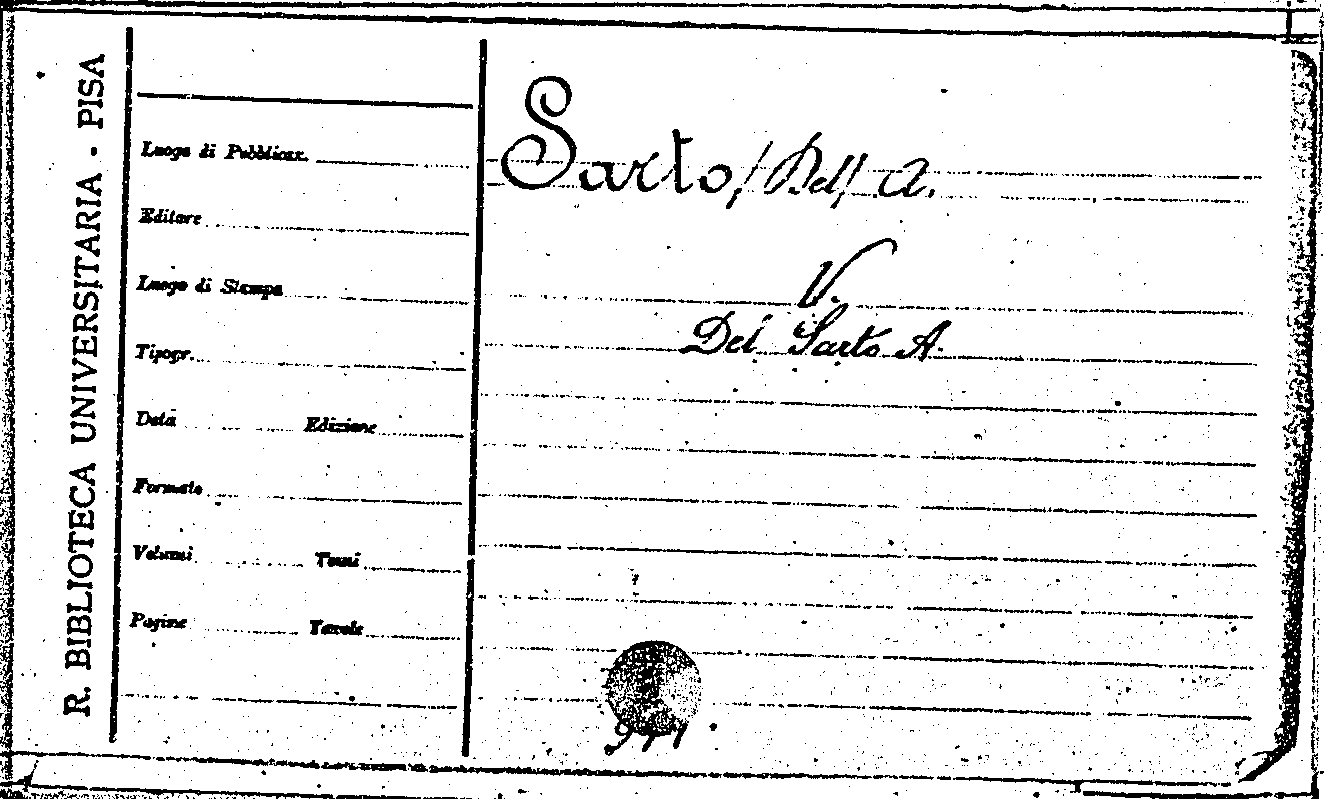 R. BIBLIOTECA UNIVERSITARIA - PISA
Luogo di Pubblicaz.
Editore
Luogo di Stampa
Tipogr.
Data Edizione
Formato
Volumi Tomi
Pagine Tavole
Sarto / Del / A.
V.
Del Sarto A.